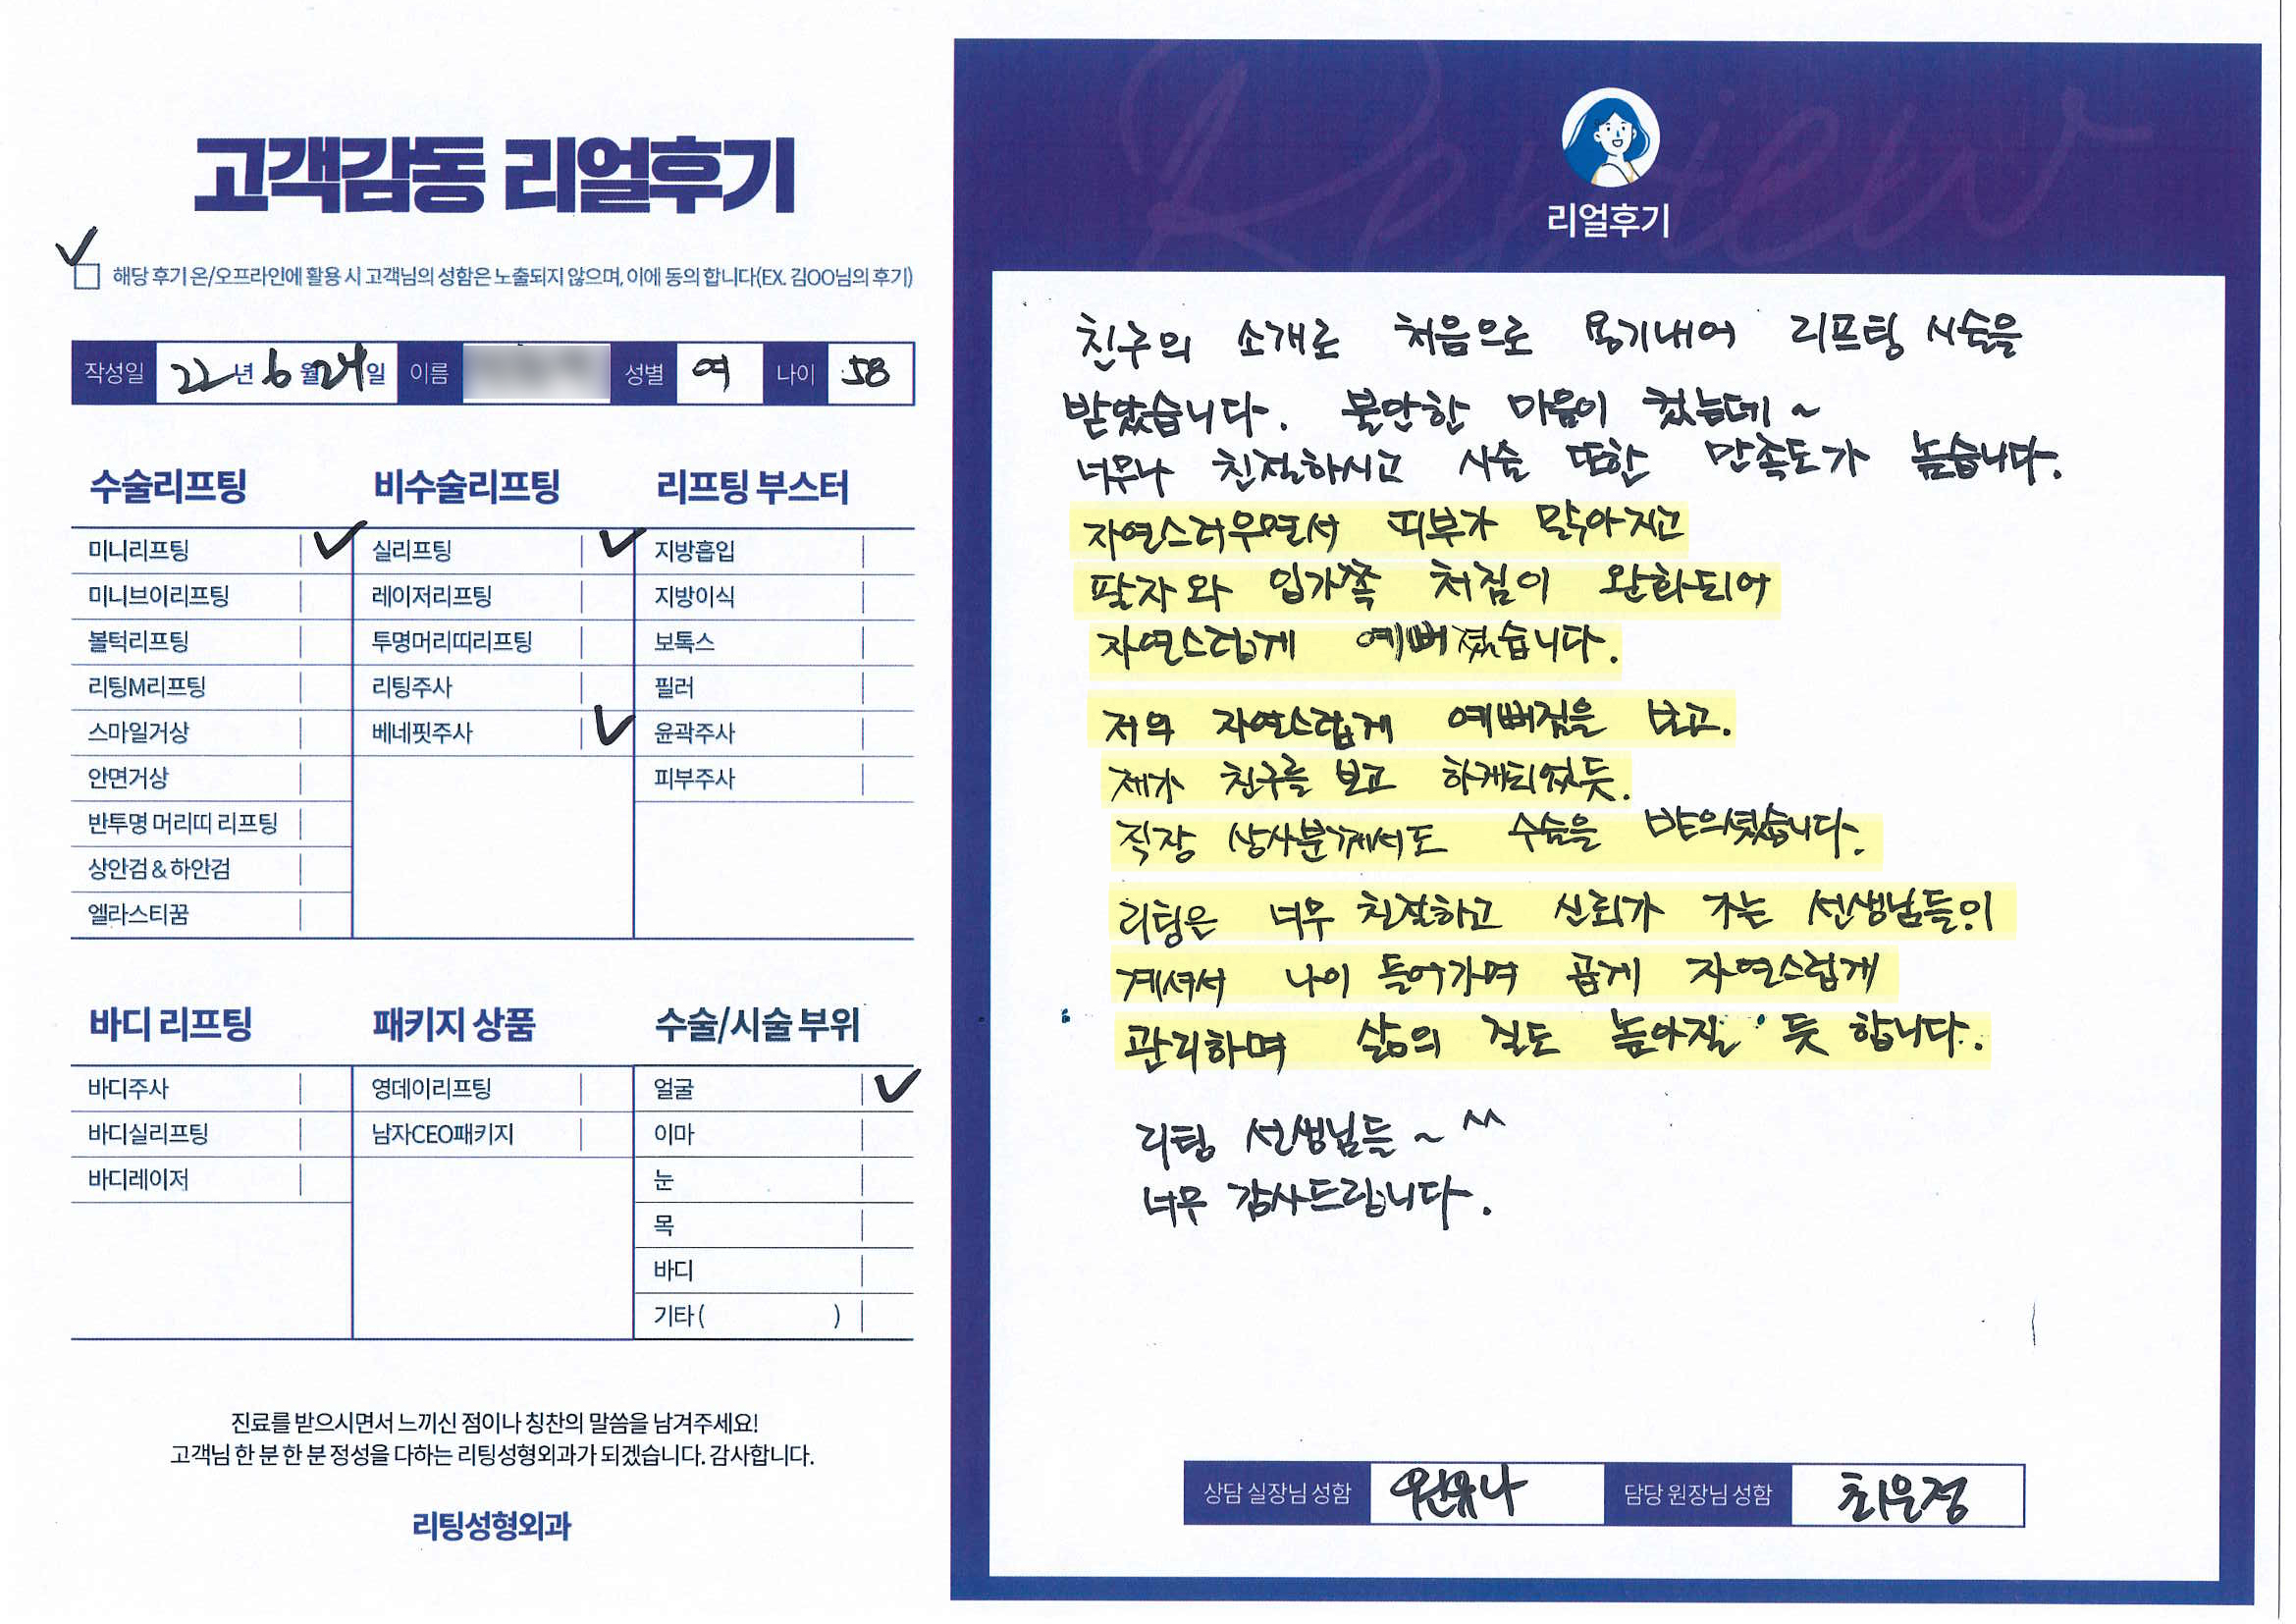 고객감동 리얼후기
해당 후기 온/오프라인에 활용 시 고객님의 성함은 노출되지 않으며, 이에 동의 합니다(EX. 김OO님의 후기)
작성일 22년 6월 24일 이름 성별 여 나이 58
수술리프팅
미니리프팅
미니브이리프팅
볼턱리프팅
리팅M리프팅
스마일거상
안면거상
반투명 머리띠 리프팅
상안검 & 하안검
엘라스티꿈
비수술리프팅
실리프팅
레이저리프팅
투명머리띠리프팅
리팅주사
베네핏주사
리프팅 부스터
지방흡입
지방이식
보톡스
필러
윤곽주사
피부주사
바디 리프팅
바디주사
바디실리프팅
바디레이저
패키지 상품
영데이리프팅
남자CEO패키지
수술/시술 부위
얼굴
이마
눈
목
바디
기타 ( )
진료를 받으시면서 느끼신 점이나 칭찬의 말씀을 남겨주세요!
고객님 한 분 한 분 정성을 다하는 리팅성형외과가 되겠습니다. 감사합니다.
리팅성형외과
Review
리얼후기
친구의 소개로 처음으로 용기내어 리프팅 시술을
받았습니다. 불안한 마음이 컸는데 ~
너무나 친절하시고 시술 또한 만족도가 높습니다.
자연스러우면서 피부가 맑아지고
팔자와 입가쪽 처짐이 완화되어
자연스럽게 예뻐졌습니다.
저의 자연스럽게 예뻐짐을 보고.
제가 친구를 보고 하게되었듯.
직장 상사분께서도 수술을
리팅은 너무 친절하고 신뢰가 가는 선생님들이
계셔서 나이 들어가며 곱게 자연스럽게
관리하며 삶의 질도 높아질 듯 합니다.
리팅 선생님들 ~ ^^
너무 감사드립니다.
상담 실장님 성함 원유나 담당 원장님 성함 최은정